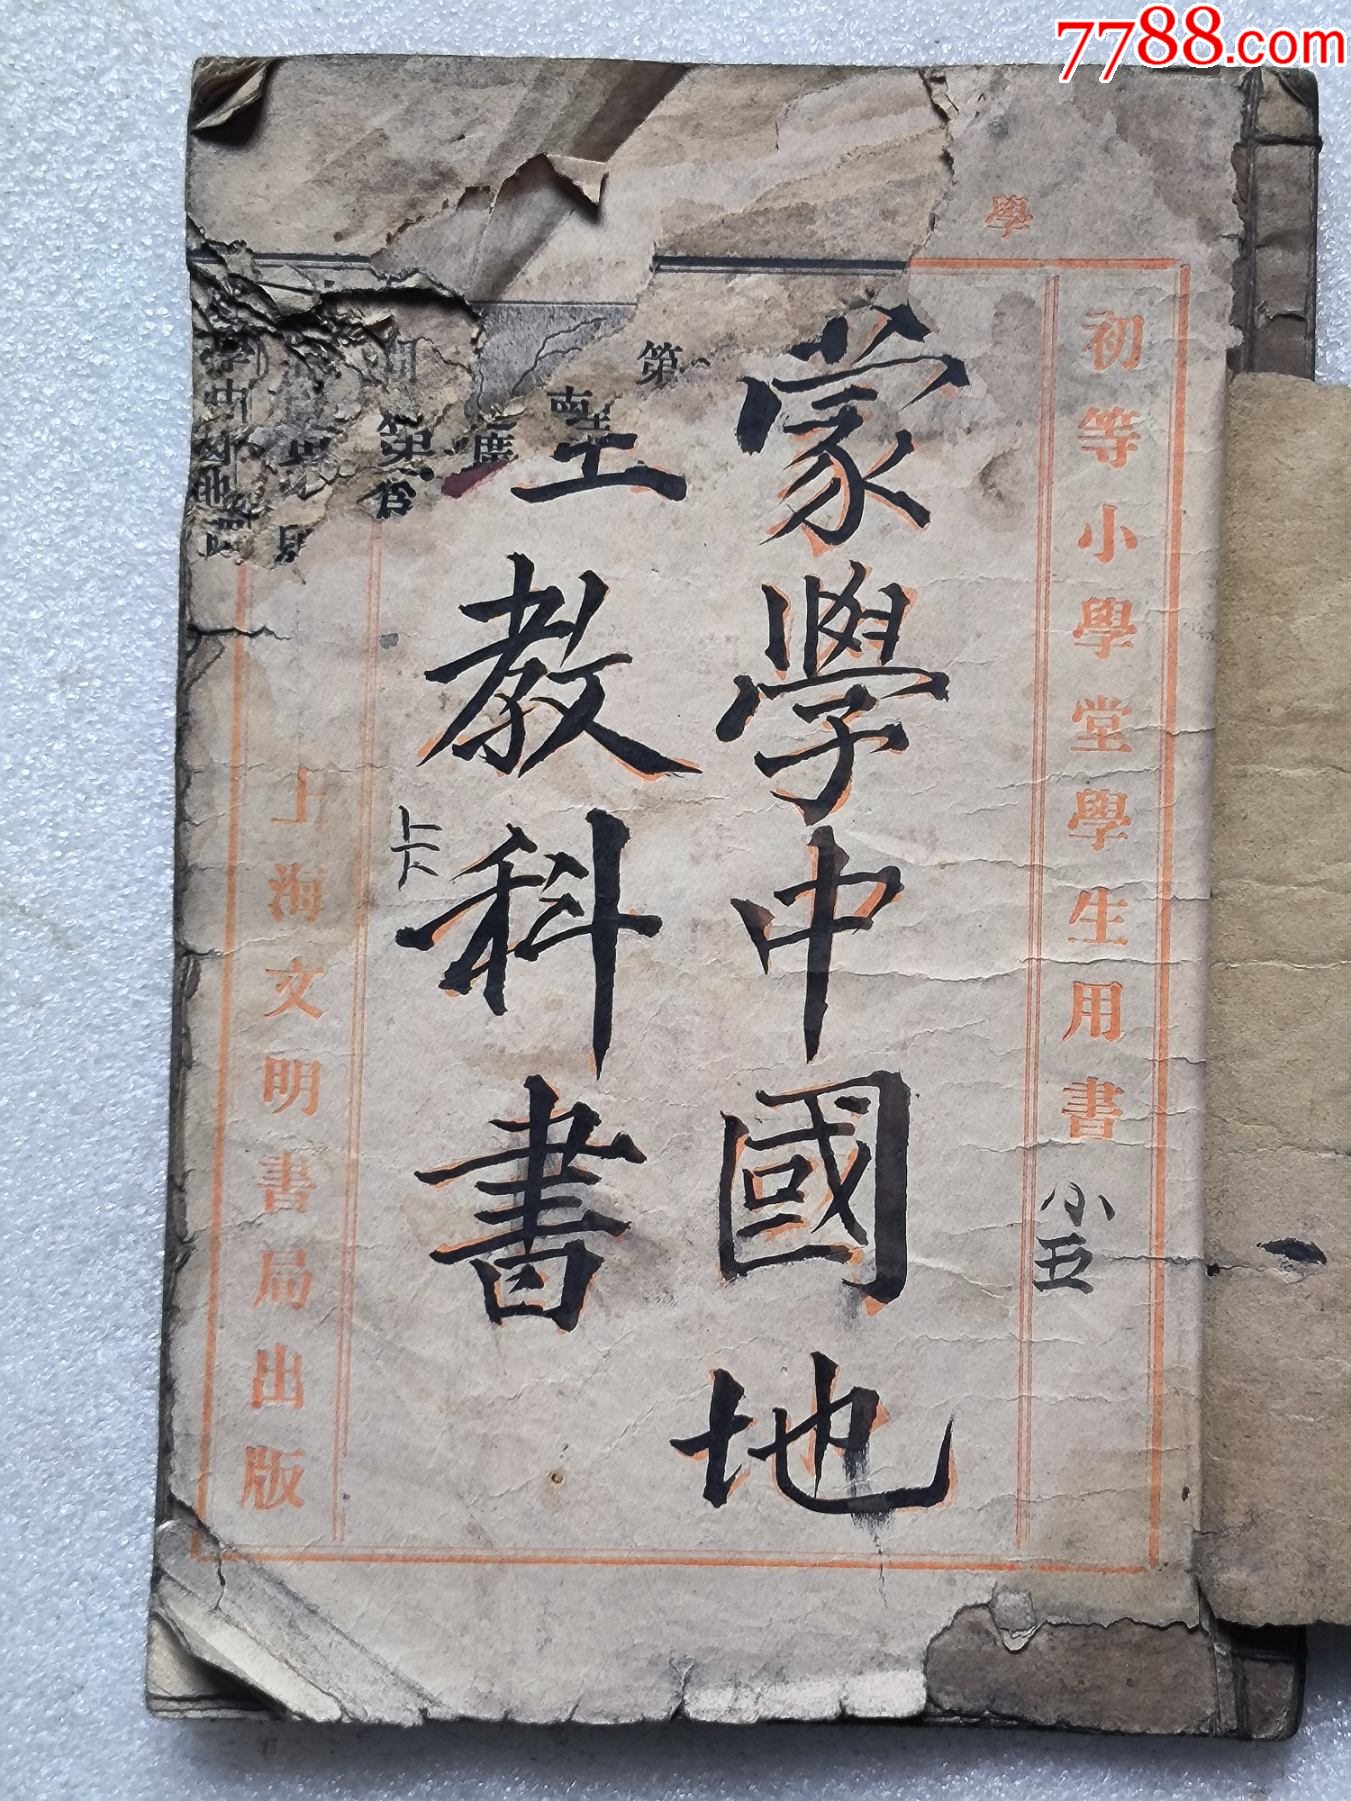 7788.com
學
初等小學堂學生用書
小五
蒙學中國地
教科書
卡
上海文明書局出版
第一
南
第